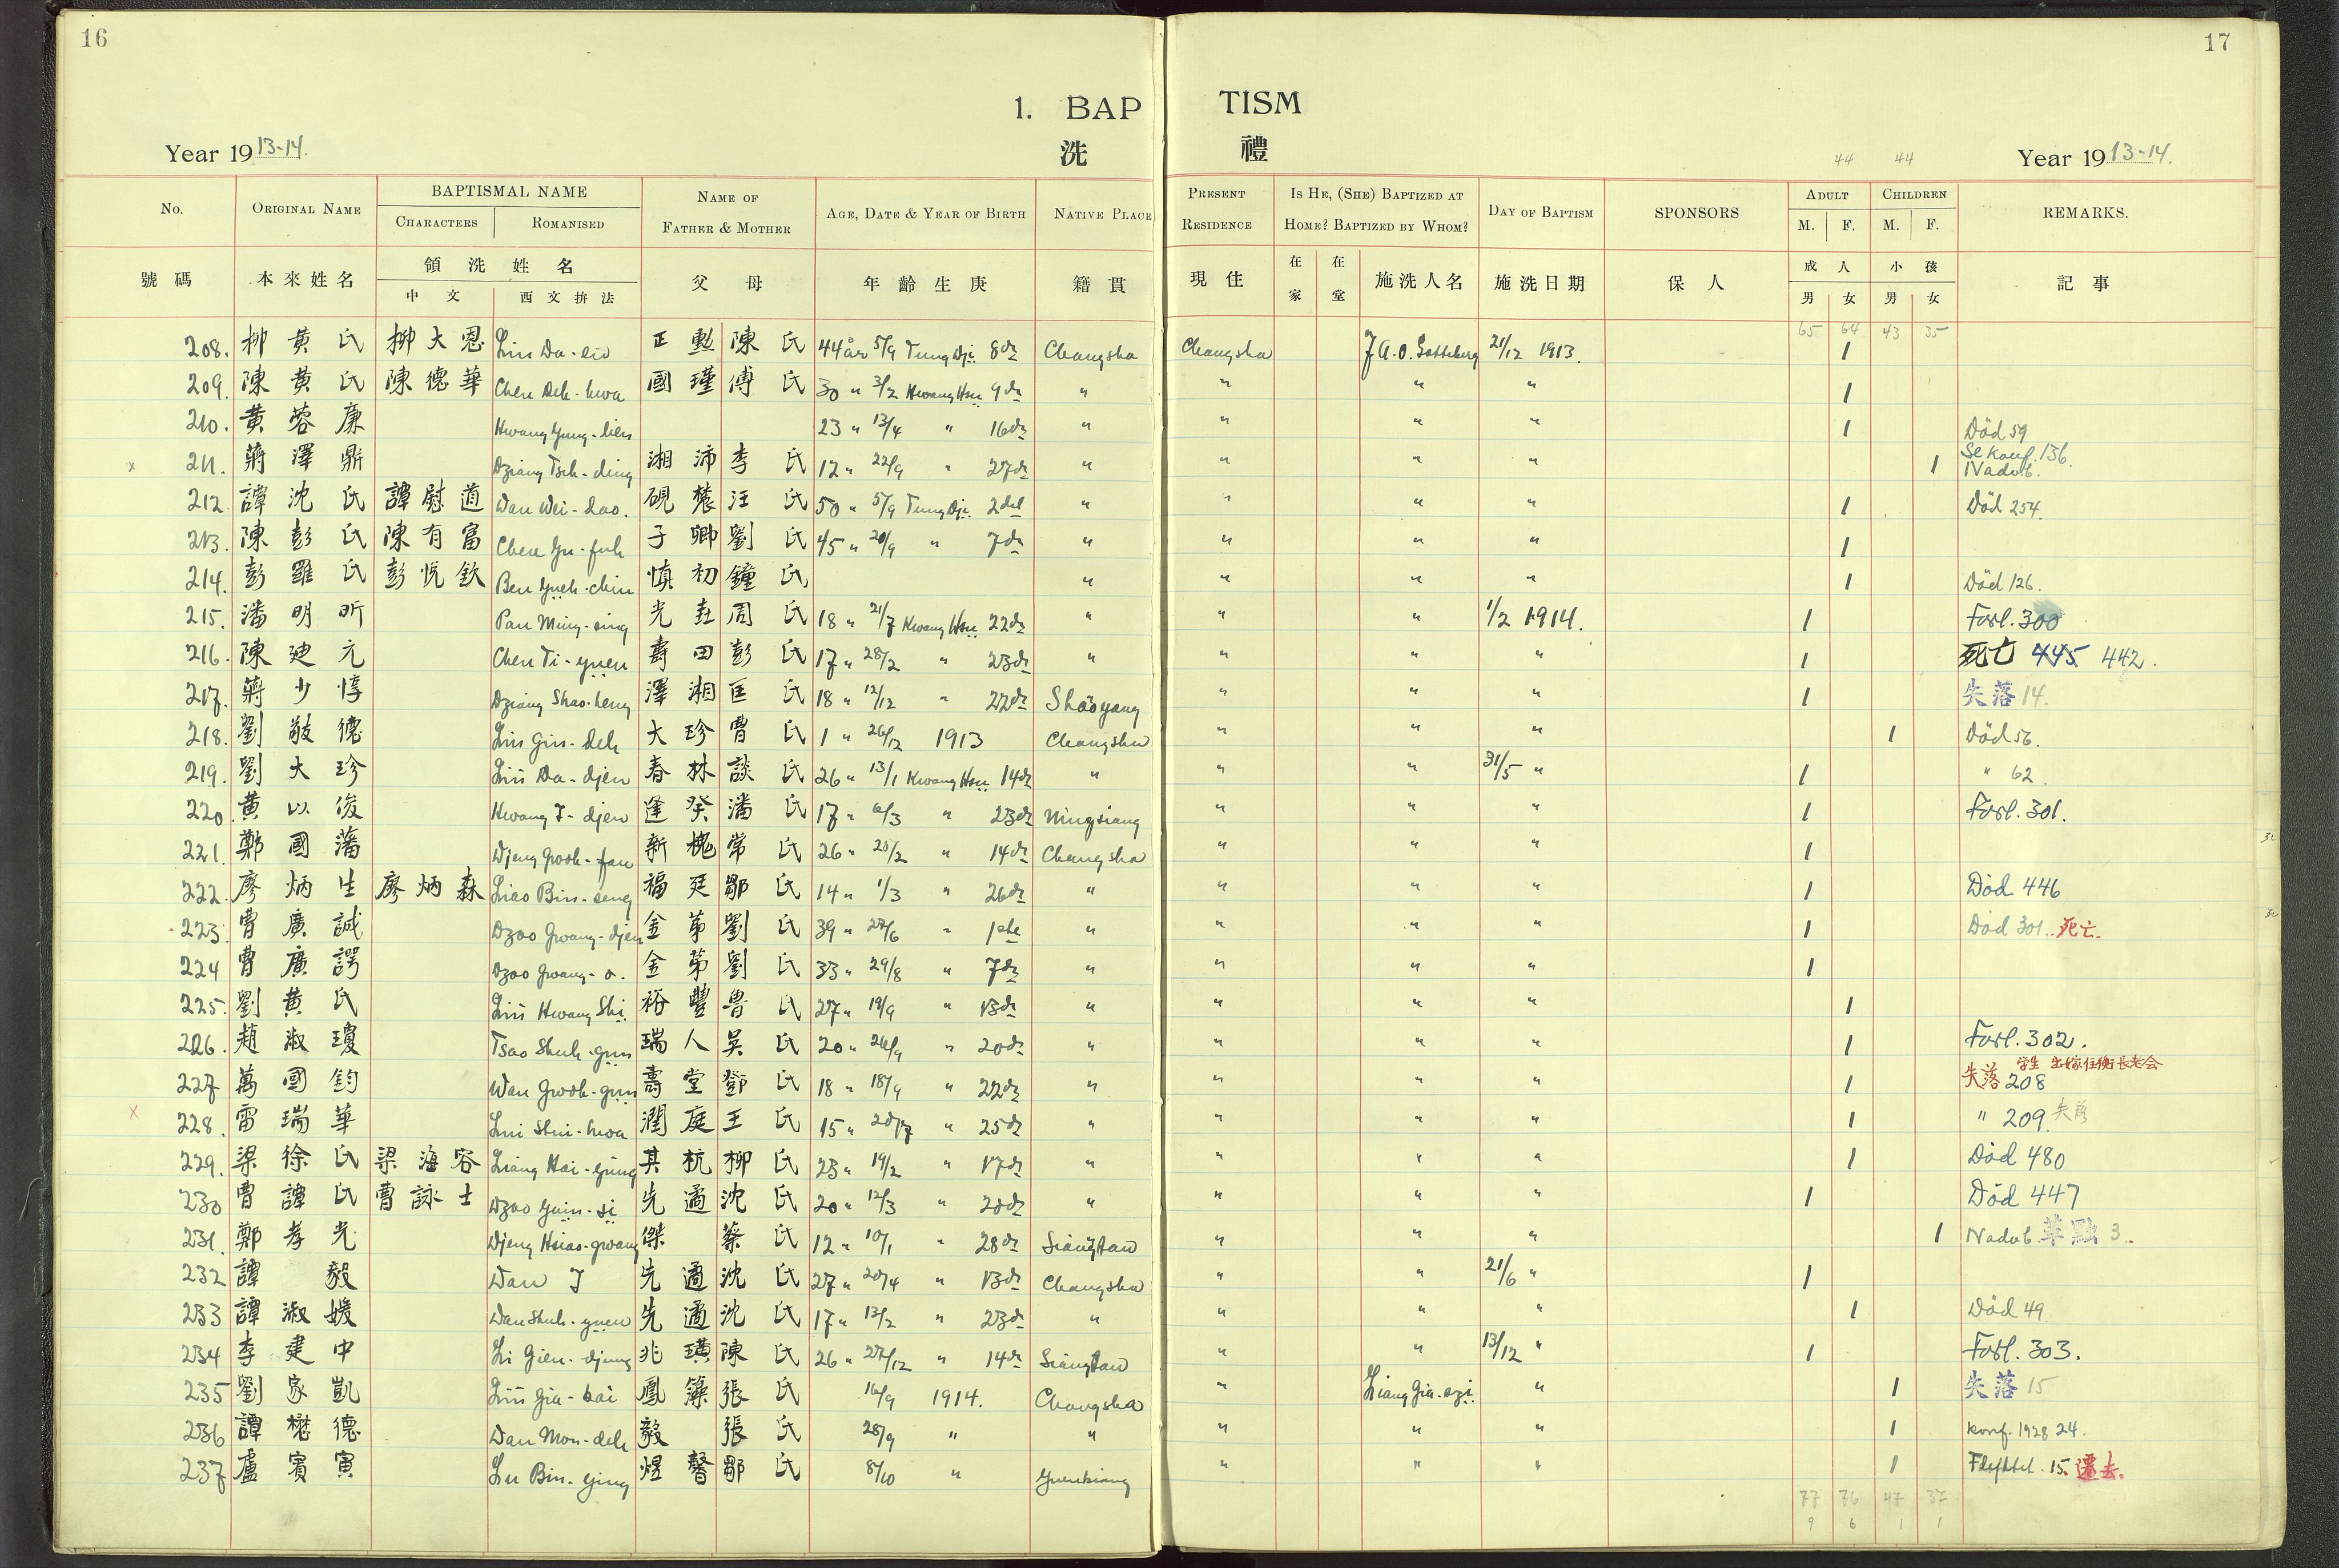 16
17
1. BAP TISM
洗 禮
Year 1913-14.
44 44
Year 1913-14.
No. ORIGINAL NAME BAPTISMAL NAME CHARACTERS ROMANISED NAME OF FATHER & MOTHER AGE, DATE & YEAR OF BIRTH NATIVE PLACE PRESENT RESIDENCE IS HE, (SHE) BAPTIZED AT HOME? BAPTIZED BY WHOM? DAY OF BAPTISM SPONSORS ADULT M. F. CHILDREN M. F. REMARKS.
號碼 本來姓名 領洗姓名 中文 西文拚法 父母 年齡生庚 籍貫 現住 在家 在堂 施洗人名 施洗日期 保人 成人 男 女 小孩 男 女 記事
65 64 43 35
208. 柳黃氏 柳大恩 Liu Da-en 正勳 陳氏 44 år 5/9 Tung Dji 8de Changsha Changsha 21/12 1913. 1
209. 陳黃氏 陳德華 Chen Deh-hwa 國瑾 傅氏 30 " 3/2 Kwang Hsü 9de " " " " 1
210. 黃蓉廉 Hwang Yung-lien 23 " 13/4 " 16de " " " " 1 Död 59
211. 蔣澤鼎 Dziang Tseh-ding 湘沛 李氏 12 " 22/9 " 27de " " " " 1 Se konf. 136. Nadvb.
212 譚沈氏 譚慰道 Dan Wei-dao. 硯 汪氏 50 " 5/9 Tung Dji 2del " " " " 1 Död 254.
213. 陳彭氏 陳有富 Chen Yu-fuh 子卿 劉氏 45 " 20/9 " 7de " " " " 1
214. 彭羅氏 彭悅欽 Pen Yueh-chin 慎初 鐘氏 " " " " 1 Död 126.
215. 潘明昕 Pan Ming-sing 光 周氏 18 " 21/7 Kwang Hsü 22de " " " 1/2 1914. 1 Forl. 300
216. 陳廸元 Chen Ti-yuen 壽田 彭氏 17 " 28/2 " 23de " " " " 1 死亡 445 442.
217. 蔣少惇 Dziang Shao-heng 澤湘 匡氏 18 " 12/12 " 22de Shaoyang " " " 1 失落 14.
218. 劉敬德 Liu Gin-deh 大珍 曹氏 1 " 26/12 1913 Changsha " " " 1 Död 56.
219. 劉大珍 Liu Da-djen 春林 談氏 26 " 13/1 Kwang Hsü 14de " " " 31/5 " 1 " 62.
220. 黃以俊 Hwang I-djen 逢癸 潘氏 17 " 6/3 " 23de Ningsiang " " " 1 Forl. 301.
221. 鄭國藩 Djeng Gwoh-fan 新槐 常氏 26 " 28/2 " 14de Changsha " " " 1
222. 廖炳生 廖炳森 Liao Bin-seng 福廷 鄒氏 14 " 1/3 " 26de " " " " 1 Död 446
223. 曹廣誠 Dzao Gwang-djen 金第 劉氏 39 " 27/6 " 1ste " " " " 1 Död 301. 死亡.
224 曹廣諤 Dzao Gwang-o. 金第 劉氏 33 " 29/8 " 7de " " " " 1
225. 劉黃氏 Liu Hwang Shi 裕豐 魯氏 27 " 19/9 " 13de " " " " 1
226. 趙淑瓊 Tsao Shuh-gun 瑞人 吳氏 20 " 26/9 " 20de " " " " 1 Forl. 302.
227 萬國鈞 Wan Gwoh-gun 壽堂 鄧氏 18 " 18/9 " 22de " " " " 1 失落 208 学生 出嫁住衡長老会
228. 雷瑞華 Lui Shui-hwa 潤庭 王氏 15 " 20/7 " 25de " " " " 1 " 209. 失落
229. 梁徐氏 梁海容 Liang Hai-yung 其杭 柳氏 23 " 19/2 " 17de " " " " 1 Död 480
230 曹譚氏 曹詠士 Dzao Yuin-si 先遹 沈氏 20 " 12/3 " 20de " " " " 1 Död 447
231. 鄭孝光 Djeng Hsiao-gwang 傑 蔡氏 12 " 10/1 " 28de Siangtan " " " 1 Nadvb. 3.
232 譚毅 Dan I 先遹 沈氏 27 " 20/4 " 13de Changsha " " 21/6 " 1
233 譚淑媛 Dan Shuh-yuen 先遹 沈氏 17 " 13/2 " 23de " " " " 1 Död 49
234 李建中 Li Gien-djung 兆璜 陳氏 26 " 27/12 " 14de Siangtan " " 13/12 " 1 Forl. 303.
235 劉家凱 Liu Gia-kai 鳳籙 張氏 16/9 1914. Changsha " Liang Gia-szi. " 1 失落 15
236 譚懋德 Dan Mou-deh 毅 張氏 28/9 " " " " " 1 Konf. 1928 24.
237 盧賓寅 Lu Bin-ying 煜馨 鄒氏 8/10 " Yuenkiang " " " 1 15. 遷去.
77 76 47 37
9 6 1 1